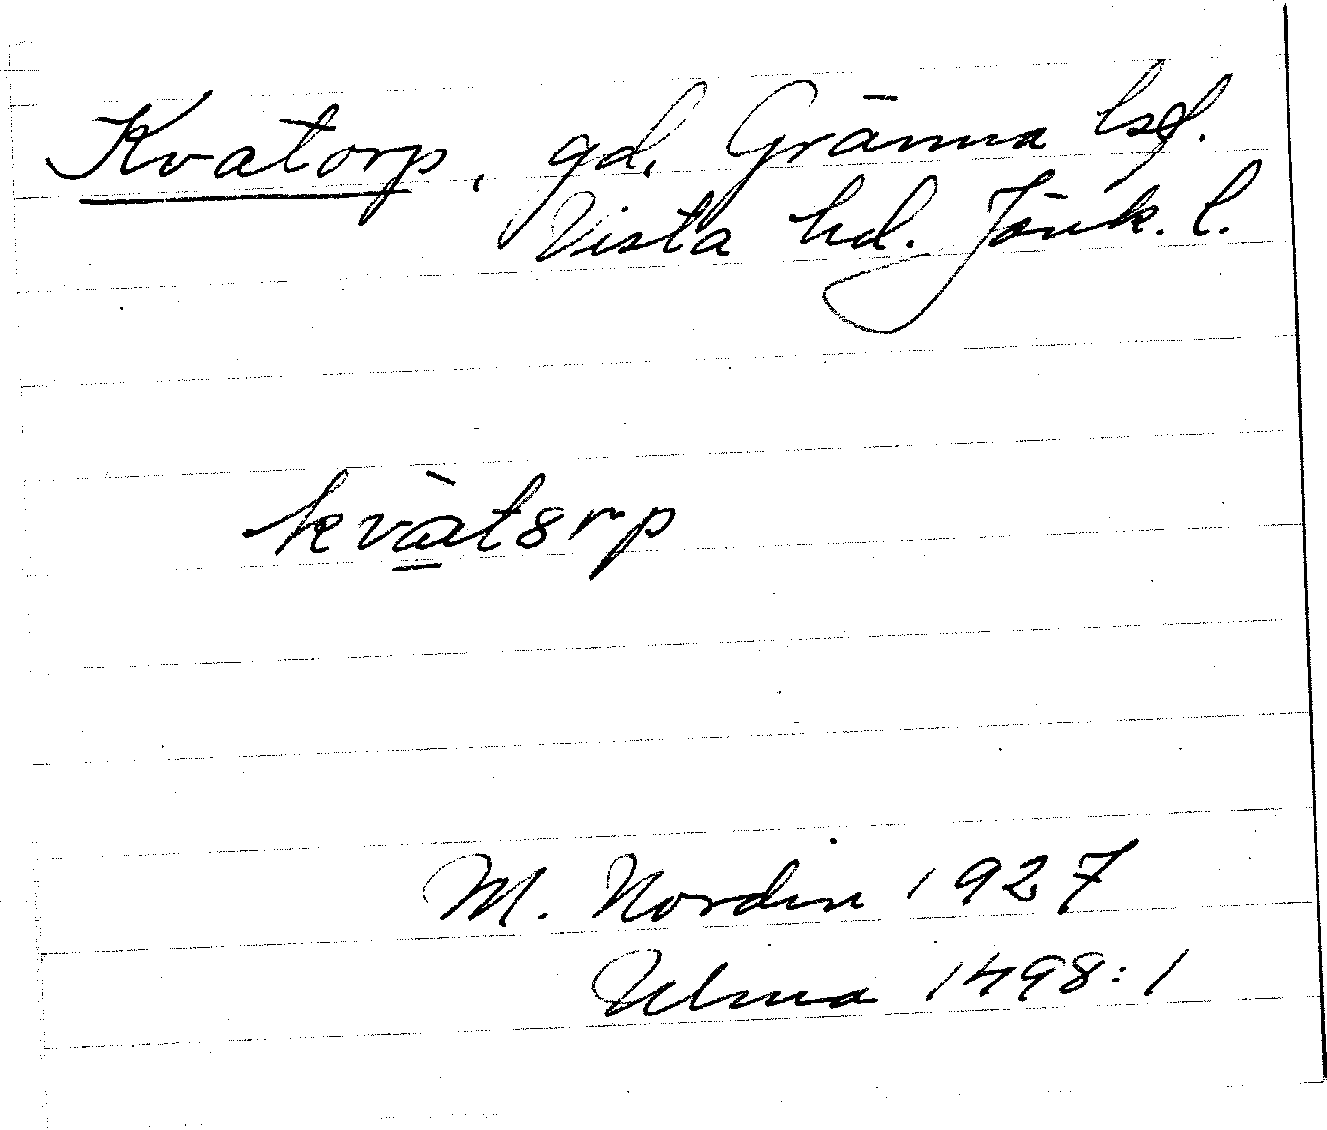 Kvatorp, gd, Gränna lsf.
Vista hd. Jönk. l.
kvàtɜrp
M. Nordin 1927
Ulma 1498:1